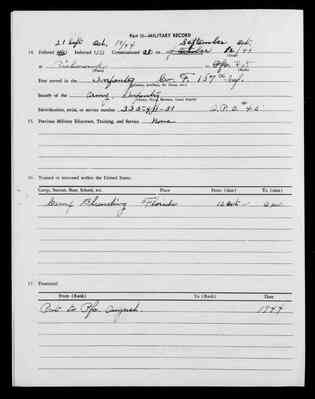 Part II—MILITARY RECORD
21 Sept Oct. 1944 September Oct.
14. Enlisted Inducted Commissioned on
at Richmond Pfc
(Place)
First served in the Infantry Co. F. 157th Inf.
Branch of the Army Infantry
Identification, serial, or service number A.P.O. #45
15. Previous Military Education, Training, and Service None
16. Trained or stationed within the United States.
Camp, Station, Base, School, etc. Place From (date) To (date)
Camp Blanding Florida
17. Promoted
From (Rank) To (Rank) Date
Pvt to Pfc 1944